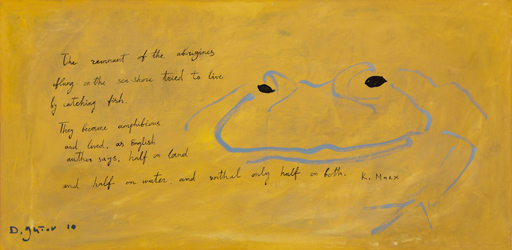 The remnant of the aborigines
flung on the sea-shore tried to live
by catching fish.
They became amphibious
and lived, as English
author says, half on land
and half on water, and withal only half on both.
K. Marx
D. Gutov 10